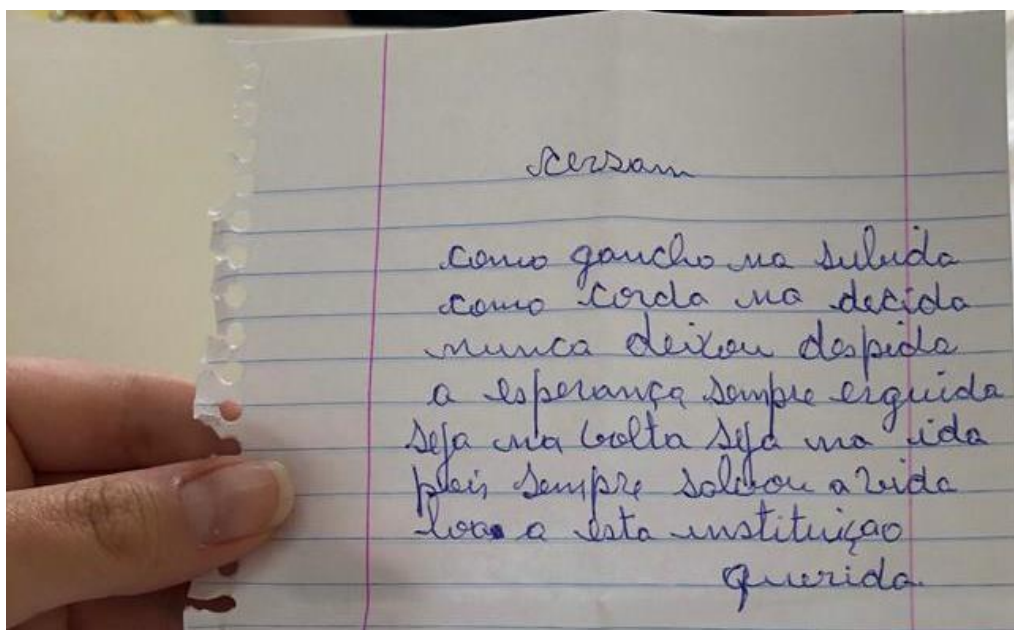 cersam
como gancho na subida
como corda na decida
nunca deixou despida
a esperança sempre erguida
seja na volta seja na ida
pois sempre salvou a vida
loas a esta instituiçao
querida